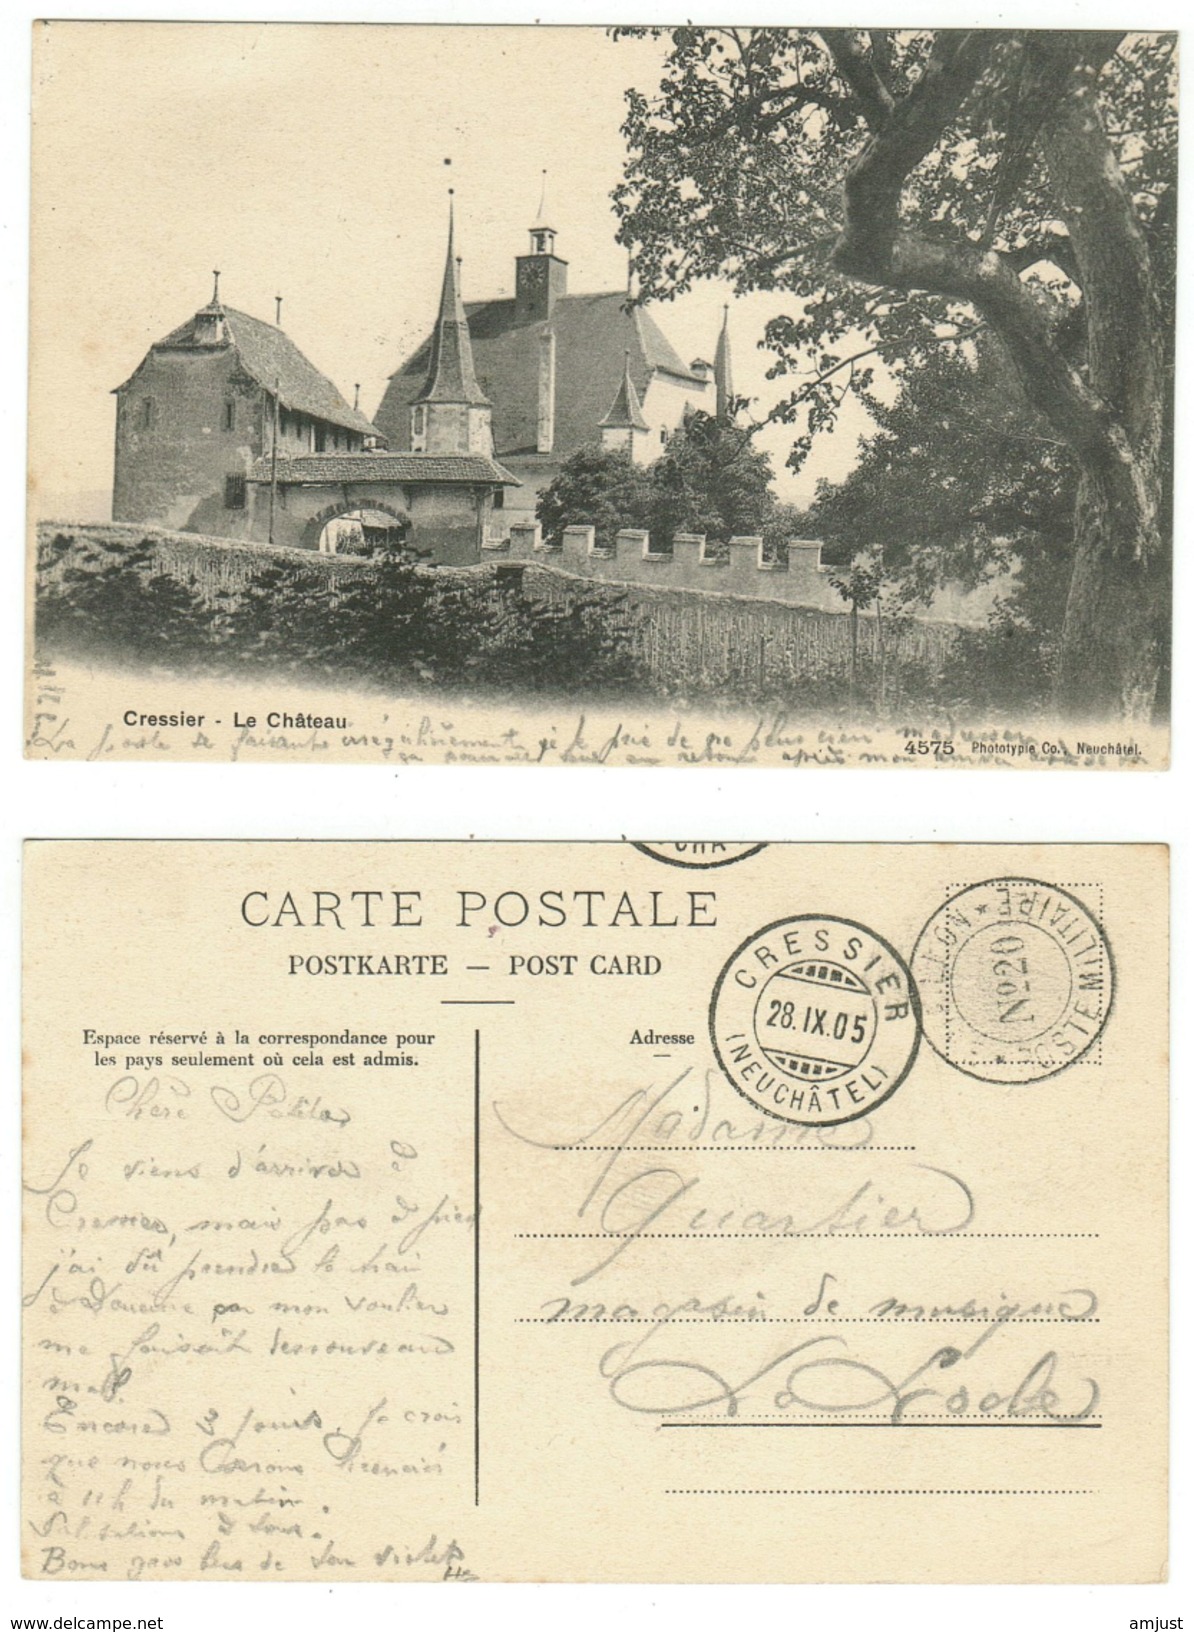 Cressier - Le Château
4575 Phototypie Co., Neuchâtel.
La poste se faisant irrégulièrement je te prie de ne plus rien
après mon
CARTE POSTALE
POSTKARTE — POST CARD
Espace réservé à la correspondance pour
les pays seulement où cela est admis.
Adresse
CRESSIER
28.IX.05
(NEUCHÂTEL)
POSTE MILITAIRE
No 20
Chère
Je viens d'arriver à
Cressier, mais pas à pied
j'ai dû prendre le train
à par mon soulier
me faisait de nouveau
mal.
Encore 3 jours. Je crois
que nous serons licenciés
à 11h du matin.
Salutations à tous.
Bons de ton
Madame
Quartier
magasin de musique
Le Locle
www.delcampe.net
amjust